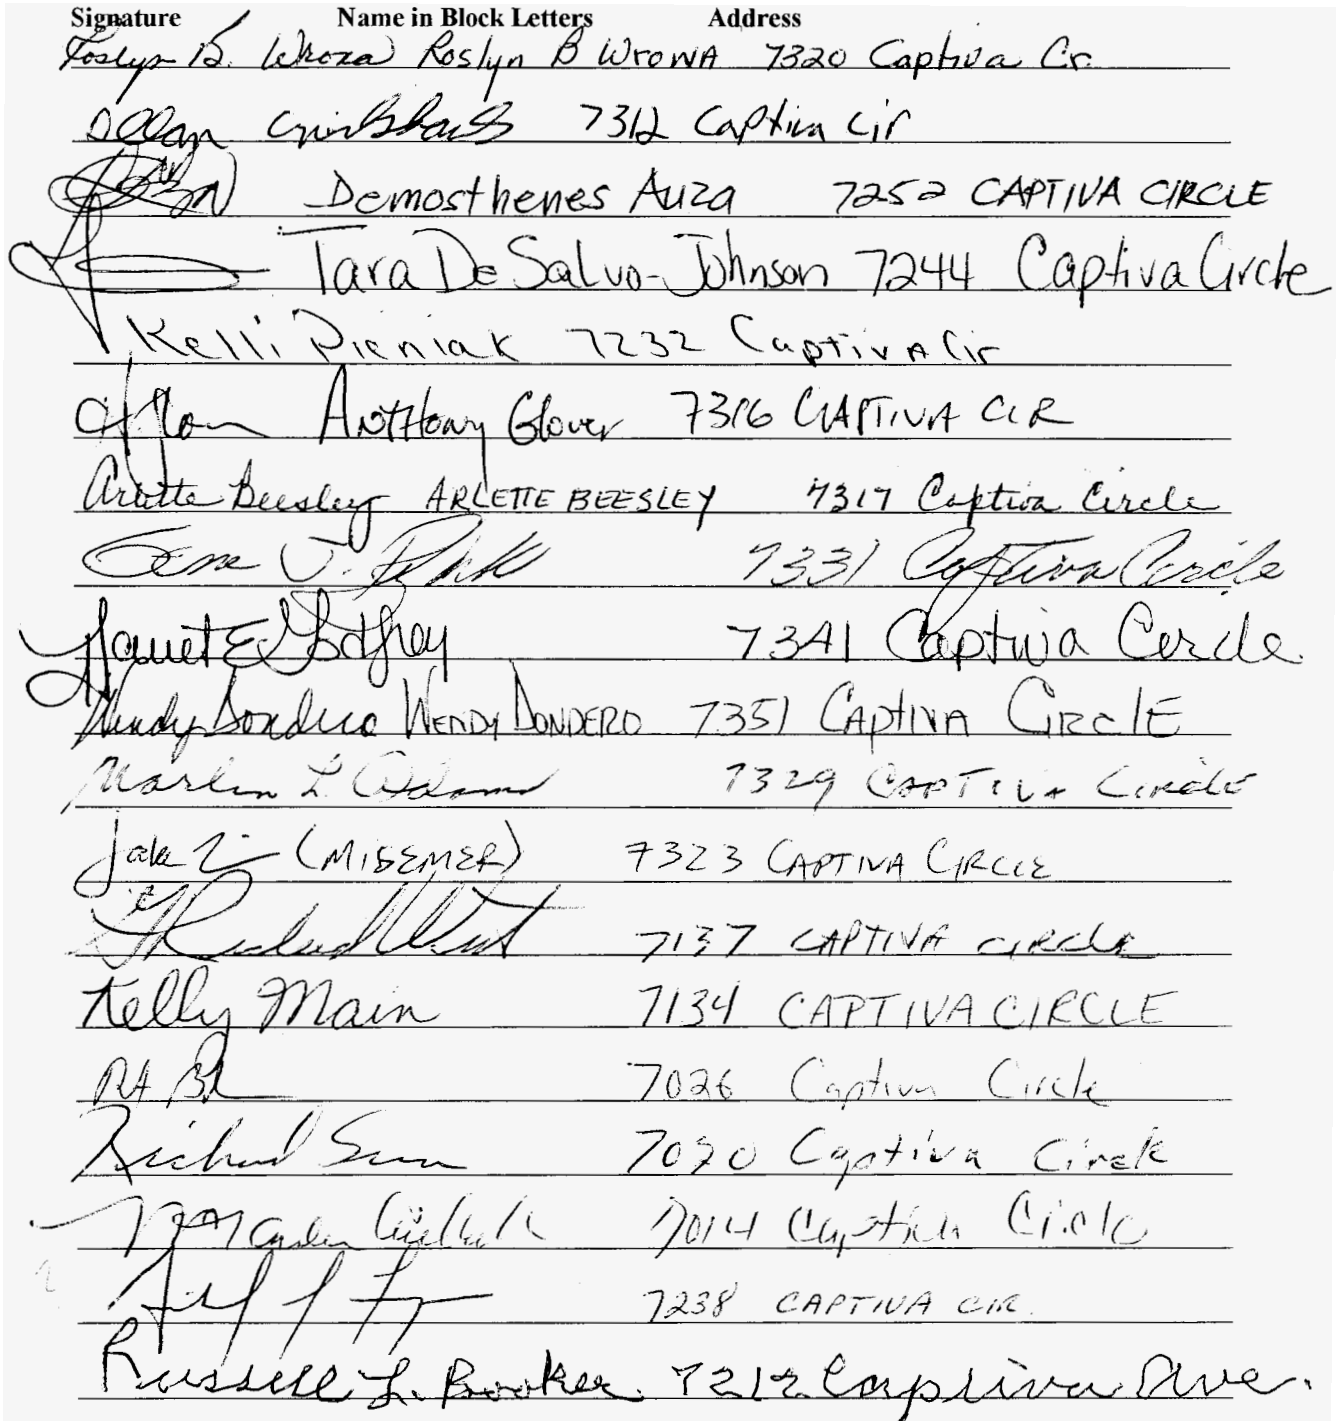 Signature Name in Block Letters Address
Roslyn B. Wrona Roslyn B WrowA 7320 Captiva Cr.
7312 Captiva Cir
Demosthenes Auza 7252 CAPTIVA CIRCLE
Tara DeSalvo-Johnson 7244 Captiva Circle
Kelli Pieniak 7232 Captiva Cir
Anthony Glover 7316 CAPTIVA CIR
Arlette Beesley ARLETTE BEESLEY 7317 Captiva Circle
Gene J. 7331 Captiva Circle
Janet E Godfrey 7341 Captiva Cercle.
Wendy Dondero WENDY DONDERO 7351 CAPTIVA CIRCLE
Marlin L. Adams 7329 CAPTIVA CIRCLE
Jake (MISEMER) 7323 CAPTIVA CIRCLE
Richard 7137 CAPTIVA CIRCLE
Kelly Main 7134 CAPTIVA CIRCLE
7026 Captiva Circle
Richard 7020 Captiva Circle
7014 Captiva Circle
7238 CAPTIVA CIR.
Russell L. Booker 7212 Captiva Ave.